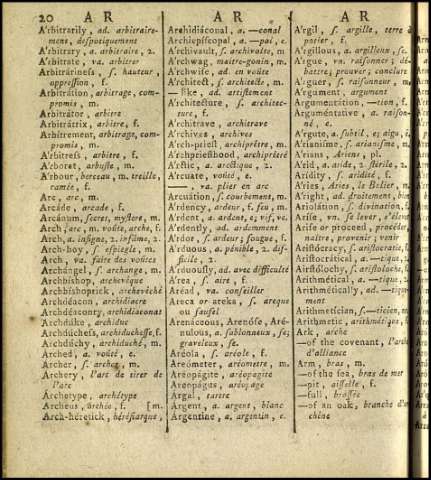 20 A R A R A R
A'rbitrarily, ad. arbitraire-
ment, despotiquement
A'rbitrary, a. arbitraire, 2.
A'rbitrate, va. arbitrer
Arbitrariness, ſ. hauteur,
oppreſſion, f.
Arbitrátion, arbitrage, com-
promis, m.
Arbitrátor, arbitre
Arbitrátrix, arbitre, f.
Arbitrement, arbitrage, com-
promis, m.
A'rbitreſs, arbitre, f.
A'rboret, arbuſte, m.
A'rbour, berceau, m. treille,
ramée, f.
Arc, arc, m.
Arcáde, arcade, f.
Arcánum, ſecret, myſtere, m.
Arch, arc, m. voûte, arche, f.
Arch, a. inſigne, 2. inſâme, 2.
Arch-boy, ſ. eſpiegle, m.
Arch, va. faire des voûtes
Archángel, ſ. archange, m.
Archbishop, archevêque
Archbishoprick, archevêché
Archdéacon, archidiacre
Archdéaconry, archidiaconat
Archdúke, archiduc
Archdúcheſs, archiducheſſe, f.
Archdúchy, archiduché, m.
Arched, a. voûté, e.
Archer, ſ. archer, m.
Archery, l'art de tirer de
l'arc
Archetype, archétype
Archeus, archée, f. [m.
Arch-héretick, héréſiarque,
Archidiáconal, a. —canal
Archiepíſcopal, a. —pal, e.
A'rchivault, ſ. archivolte, m.
A'rchwag, maitre-gonin, m.
A'rchwiſe, ad. en voûte
A'rchitect, ſ. architecte, m.
— like, ad. artiſtement
A'rchitecture, ſ. architec-
ture, f.
A'rchitrave, architrave
A'rchives, archives
A'rch-prieſt, archiprêtre, m.
A'rchprieſthood, archiprêtré
A'rctic, a. arctique, 2.
A'rcuate, voûté, e.
——, va. plier en arc
Arcuátion, ſ. courbement, m.
A'rdency, ardeur, f. feu, m.
A'rdent, a. ardent, e; vif, ve.
A'rdently, ad. ardemment
A'rdor, ſ. ardeur; fougue, f.
A'rduous, a. pénible, 2. dif-
ficile, 2.
A'rduouſly, ad. avec difficulté
A'rea, ſ. aire, f.
Aréad, va. conſeiller
Areca or areka, ſ. areque
ou faufel
Arenáceous, Arenóſe, Aré-
nulous, a. ſablonneux, ſe;
graveleux, ſe.
Aréola, ſ. aréole, f.
Areómeter, aréometre, m.
Areópagite, aréopagite
Areopágus, aréopage
Argal, tartre
Argent, a. argent, blanc
Argentine, a. argentin, e.
A'rgil, ſ. argille, terre à
potier, f.
A'rgillous, a. argilleux, ſe.
A'rgue, vn. raiſonner; dé-
battre; prouver; conclure
A'rguer, raiſonneur, m.
A'rgument, argument
Argumentátion, —tion, f.
Arguméntative, a. raiſon-
né, e.
A'rgute, a. ſubtil, e; aigu, ë,
A'rianiſm, ſ. arianiſme, m.
A'rians, Ariens, pl.
A'rid, a. aride, 2. ſtérile, 2.
Arídity, ſ. aridité, f.
A'ries, Aries, le Belier, m.
A'right, ad. droitement, bien
Ariolátion, ſ. divination, f.
Ariſe, vn. ſe lever, s'élever
Ariſe or proceed, procéder,
naître, provenir; venir
Ariſtócracy, ſ. ariſtocratie, f.
Ariſtocrátical, a. —tique, 2.
Ariſtólochy, ſ. ariſtoloche, f.
Arithmétical, a. —tique, 2.
Arithmétically, ad. —tique-
ment
Arithmetícian, ſ. —ticien, m.
Aríthmetic, arithmétique, f.
Ark, arche
—of the covenant, l'arche
d'alliance
Arm, bras, m.
—of the ſea, bras de mer
—pit, aiſſelle, f.
—full, braſſée
—of an oak, branche d'un
chêne